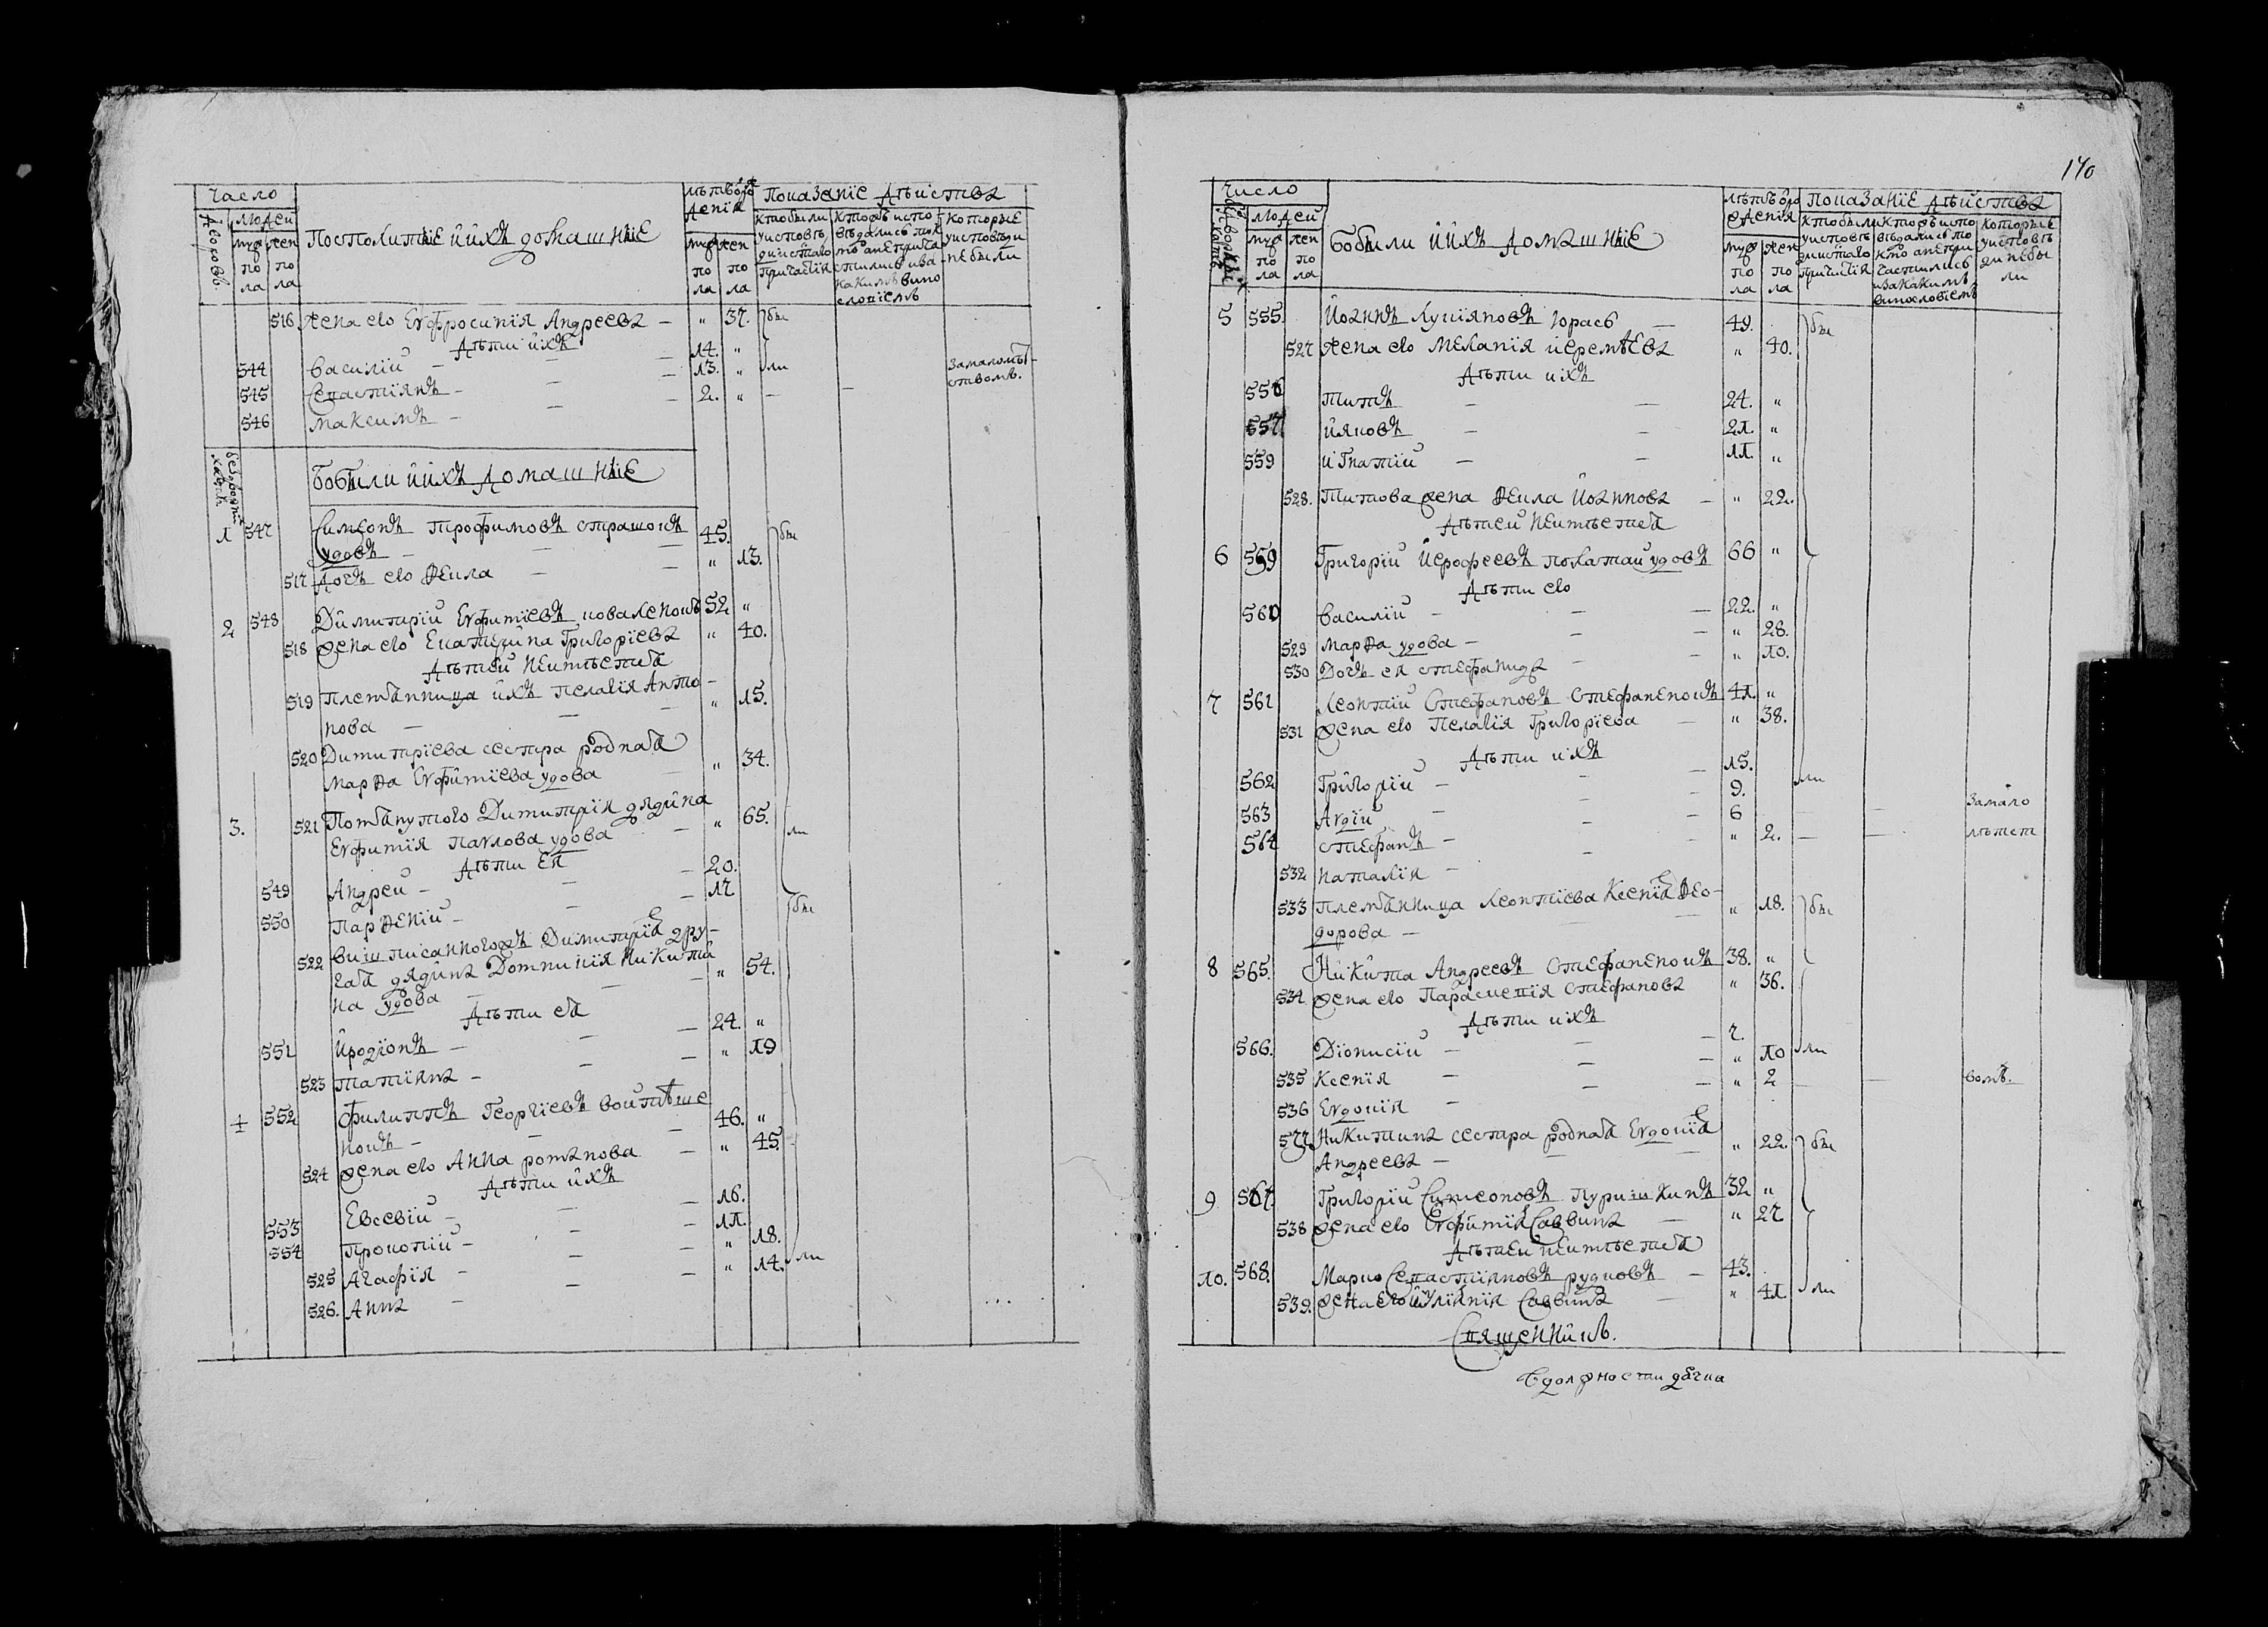 Число
Дворовъ.
людей
муж по ла
жен по ла
Посполитыѣ и ихъ домашныѣ
лѣтъ ѿ рождения
муж по ла
жен по ла
Показание дѣйства
кто были у исповѣди и стаго причастія
кто же исповѣдались токмо а не причастились и за какимъ винословіемъ
которые у исповѣди не были
516 жена его Евфросинія Андреева — „ 37. бы
дѣти ихъ
544 Василій — 14. „
545 Севастіянъ — 13. „ ли
546 Максимъ — 2. „ — — за малолѣтствомъ.
Бобыли и ихъ домашныѣ
1 547 Симеонъ Трофимовъ
удовъ — 45. бы
517 дочъ его Ѳекла — „ 13.
2 548 Димитрій Евфимиевъ Коваленокъ 52 „
518 жена его Екатерина Григоріева „ 40.
дѣтей неимѣется
519 Племѣнница ихъ Пелагія Анто-
нова — „ 15.
520 Димитріева сестра родная
Марѳа Евфимієва удова „ 34.
3. 521 Димитрія дядина
Евфимія Павлова удова — „ 65. ли
дѣти ея
549 Андрей — 20.
550 Парѳеній — 17 бы
522 вишписанногожъ Димитрія дру-
гая дядина Домникія Никити
на удова „ 54.
дѣти ея
551 Иродіонъ — 24. „
523 Татіяна — „ 19
4 552 Филиппъ Георгіевъ Войтѣше
нокъ — 46. „
524 жена его Анна Романова — „ 45.
дѣти ихъ
553 Евсевій — 16.
554 Прокопій — 11.
525 Агафія — „ 18.
526. Анна — „ 14. ли
170
Число
людей
муж по ла
жен по ла
Бобыли и ихъ домашныѣ
лѣтъ ѿ рождения
муж по ла
жен по ла
Показание дѣйства
кто были у исповѣди и стаго причастія
кто же исповѣдались токмо а не причастились и за какимъ винословіемъ
которые у исповѣди не были
5 555. Иоаннъ Лукіяновъ Юрасъ — 49. бы
527 жена его Меланія Иеремѣева „ 40.
дѣти ихъ
556 Титъ — 24. „
557. Ияковъ — 21. „
559 Игнатій — 11. „
528. Титова жена Ѳекла Иоаннова — „ 22.
дѣтей неимѣется
6 559 Григорій Иерофеевъ Полатай удовъ 66 „
дѣти его
560 Василій — 22. „
529 Марѳа удова — „ 28.
530 Дочъ ея Стефанида — „ 10.
7 561 Леонтій Стефановъ Стефаненокъ 41. „
531 жена его Пелагія Григоріева — „ 38.
дѣти ихъ
562 Григорій — 15. ли
563 Авдій — 9.
564 Стефанъ — 6 за мало
532 Наталія — „ 2. — — лѣтст
533 Племѣнница Леонтіева Ксенія Ѳео-
дорова — „ 18. бы
8 565. Никита Андреевъ Стефаненокъ 38. „
534 жена его Параскевія Стефанова „ 36.
дѣти ихъ
566. Діонисій — 7.
535 Ксенія — „ 10 ли
536 Евдокія — „ 2 — — вомъ.
577 Никитина сестра родная Евдокія
Андреева — „ 22. бы
9 567. Григорій Симеоновъ Пуришкинъ 32 „
538 жена его Евфимія Саввина — „ 27
дѣтей неимѣется
10. 568. Марко Севастіяновъ Рудковъ — 43.
539. жена его Иулианія Саввина — „ 41 ли
Священникъ.
В должности дячка